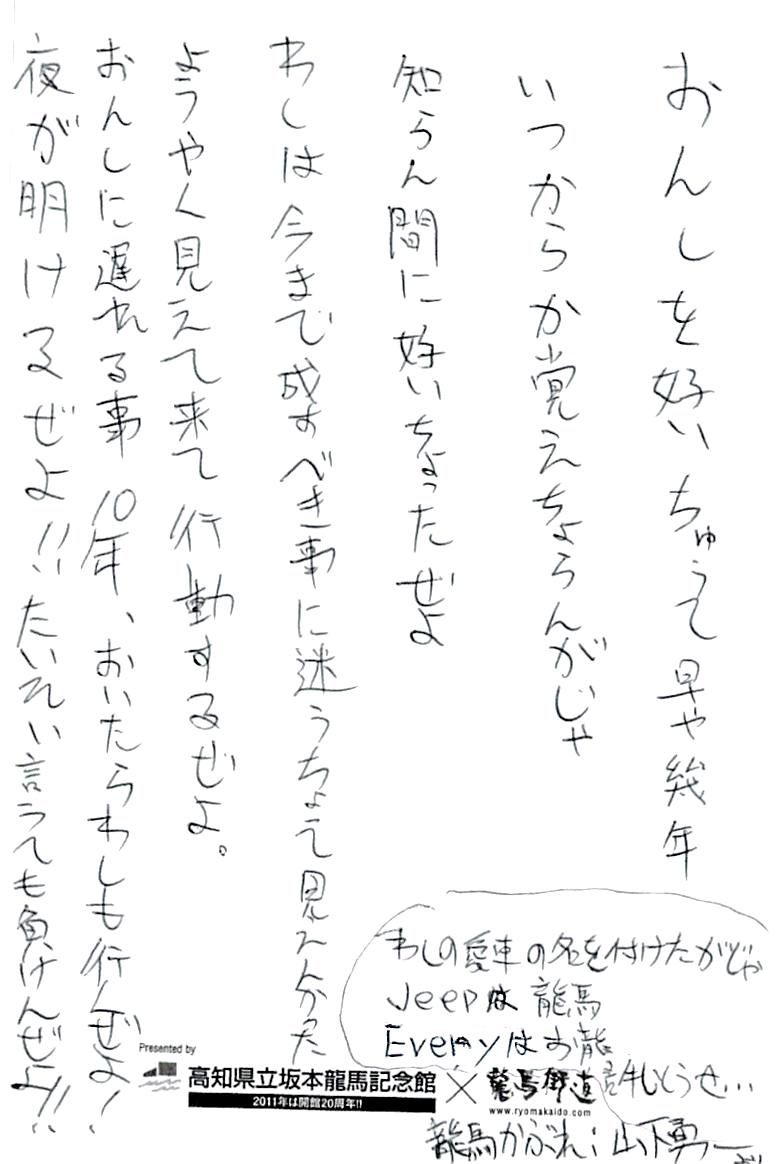 おんしを好いちゅうて早や幾年
いつからか覚えちょらんがじゃ
知らん間に好いちょったぜよ
わしは今まで成すべき事に迷うちょて見えんかった
ようやく見えて来て行動するぜよ。
おんしに遅れる事10年、おいたらわしも行んぜよ!
夜が明けるぜよ!!たいてい言うても負けんぜよ!!
わしの愛車の名を付けたがじゃ
Jeepは龍馬
Everyはお龍
許しとうせ...
龍馬かぶれ:山下勇一
Presented by
高知県立坂本龍馬記念館×龍馬街道
2011年は開館20周年!!
www.ryomakaido.com